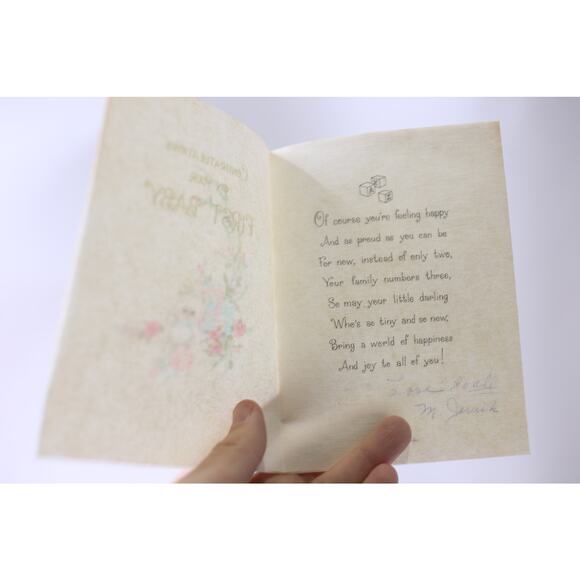 CONGRATULATIONS
ON YOUR
FIRST BABY
Of course you're feeling happy
And as proud as you can be
For now, instead of only two,
Your family numbers three,
So may your little darling
Who's so tiny and so new,
Bring a world of happiness
And joy to all of you!
M.